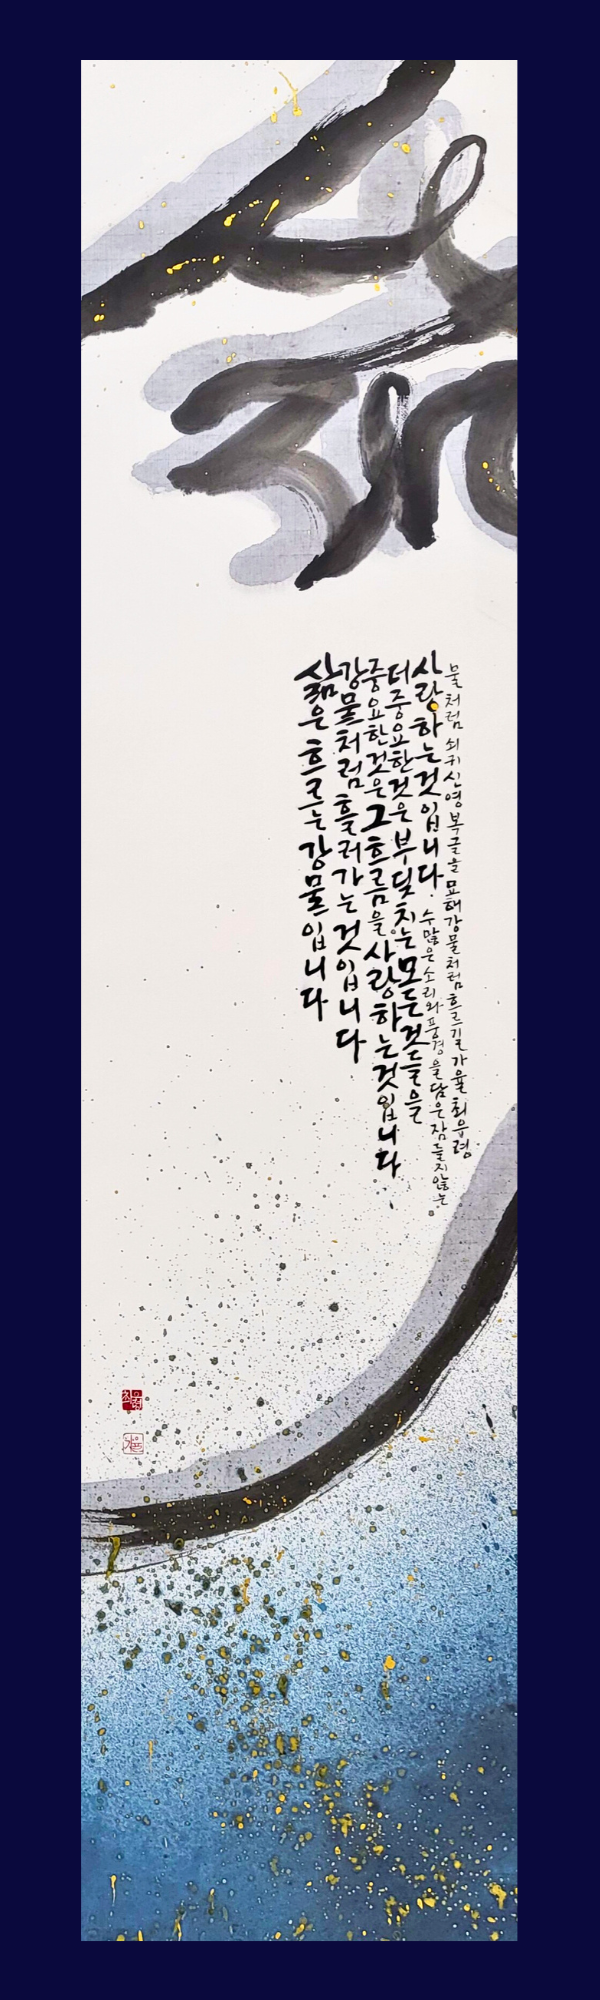 삶
삶은 흐르는 강물입니다
강물처럼 흘러가는 것입니다
중요한 것은 그 흐름을 사랑하는 것입니다.
더 중요한 것은 부딪치는 모든 것들을
사랑하는 것입니다. 수많은 소리와 풍경을 담은 잠들지 않는
물처럼 쇠귀 신영복 글을 강물처럼 흐르길 가율